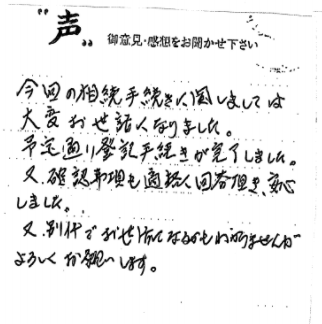 "声" 御意見・感想をお聞かせ下さい
今回の相続手続きに関しましては
大変お世話になりました。
予定通り登記手続きが完了しました。
又、確認事項も適話に回答頂き、安心
しました。
又、別件でお世話になるかもわかりませんが
よろしくお願いします。